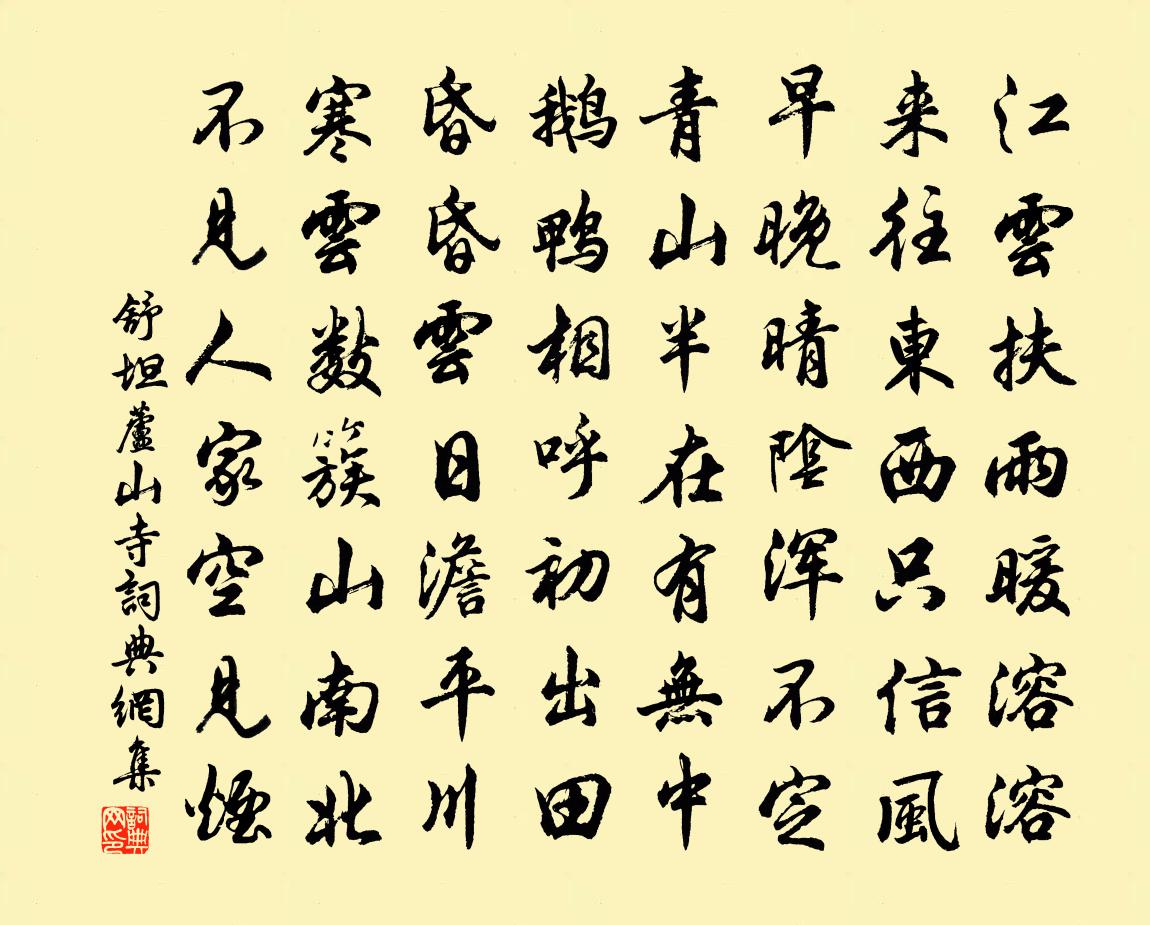 江雲扶雨暖溶溶
来往東西只信風
早晚晴陰渾不定
青山半在有無中
鹅鸭相呼初出田
昏昏雲日澹平川
寒雲數簇山南北
不見人家空見煙
舒坦蘆山寺詞典網集
詞典网印